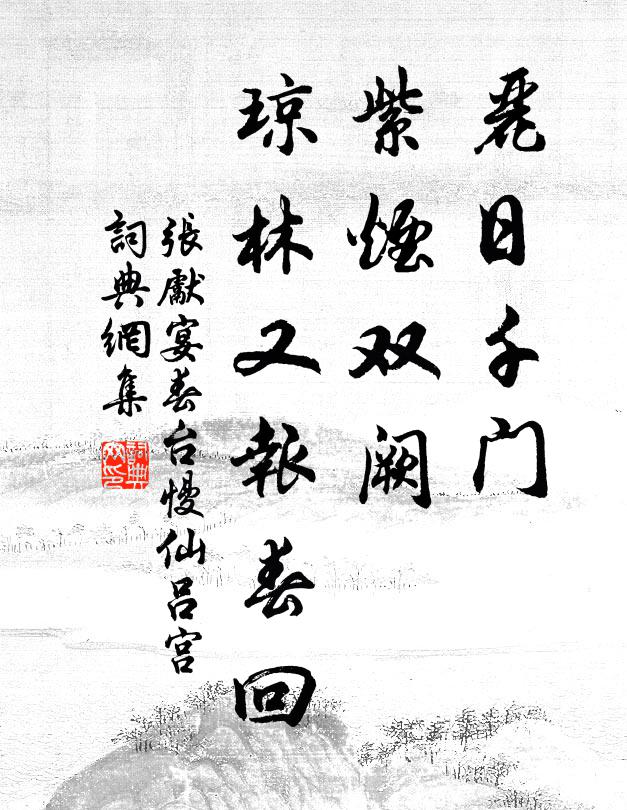 麗日千门
紫煙双阙
琼林又報春回
張獻宴春台慢仙呂宫
詞典網集